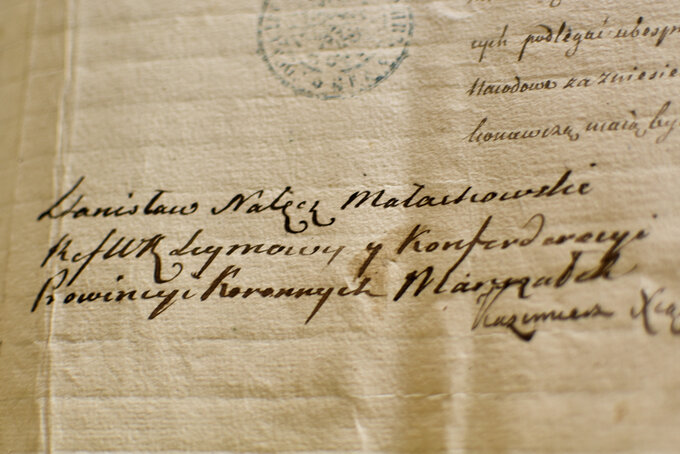 cych podlegać ubesp
Narodowe za zniesie
konawczą maią by
Stanisław Nałęcz Małachowski
Ref WK Seymowy y Konfederacyi
Prowincyi Koronnych Marszałek
Kazimierz Xią